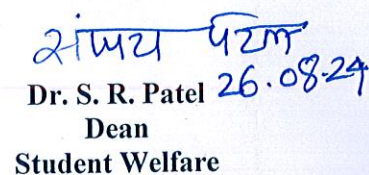 संजय पटेल
Dr. S. R. Patel 26.08.24
Dean
Student Welfare